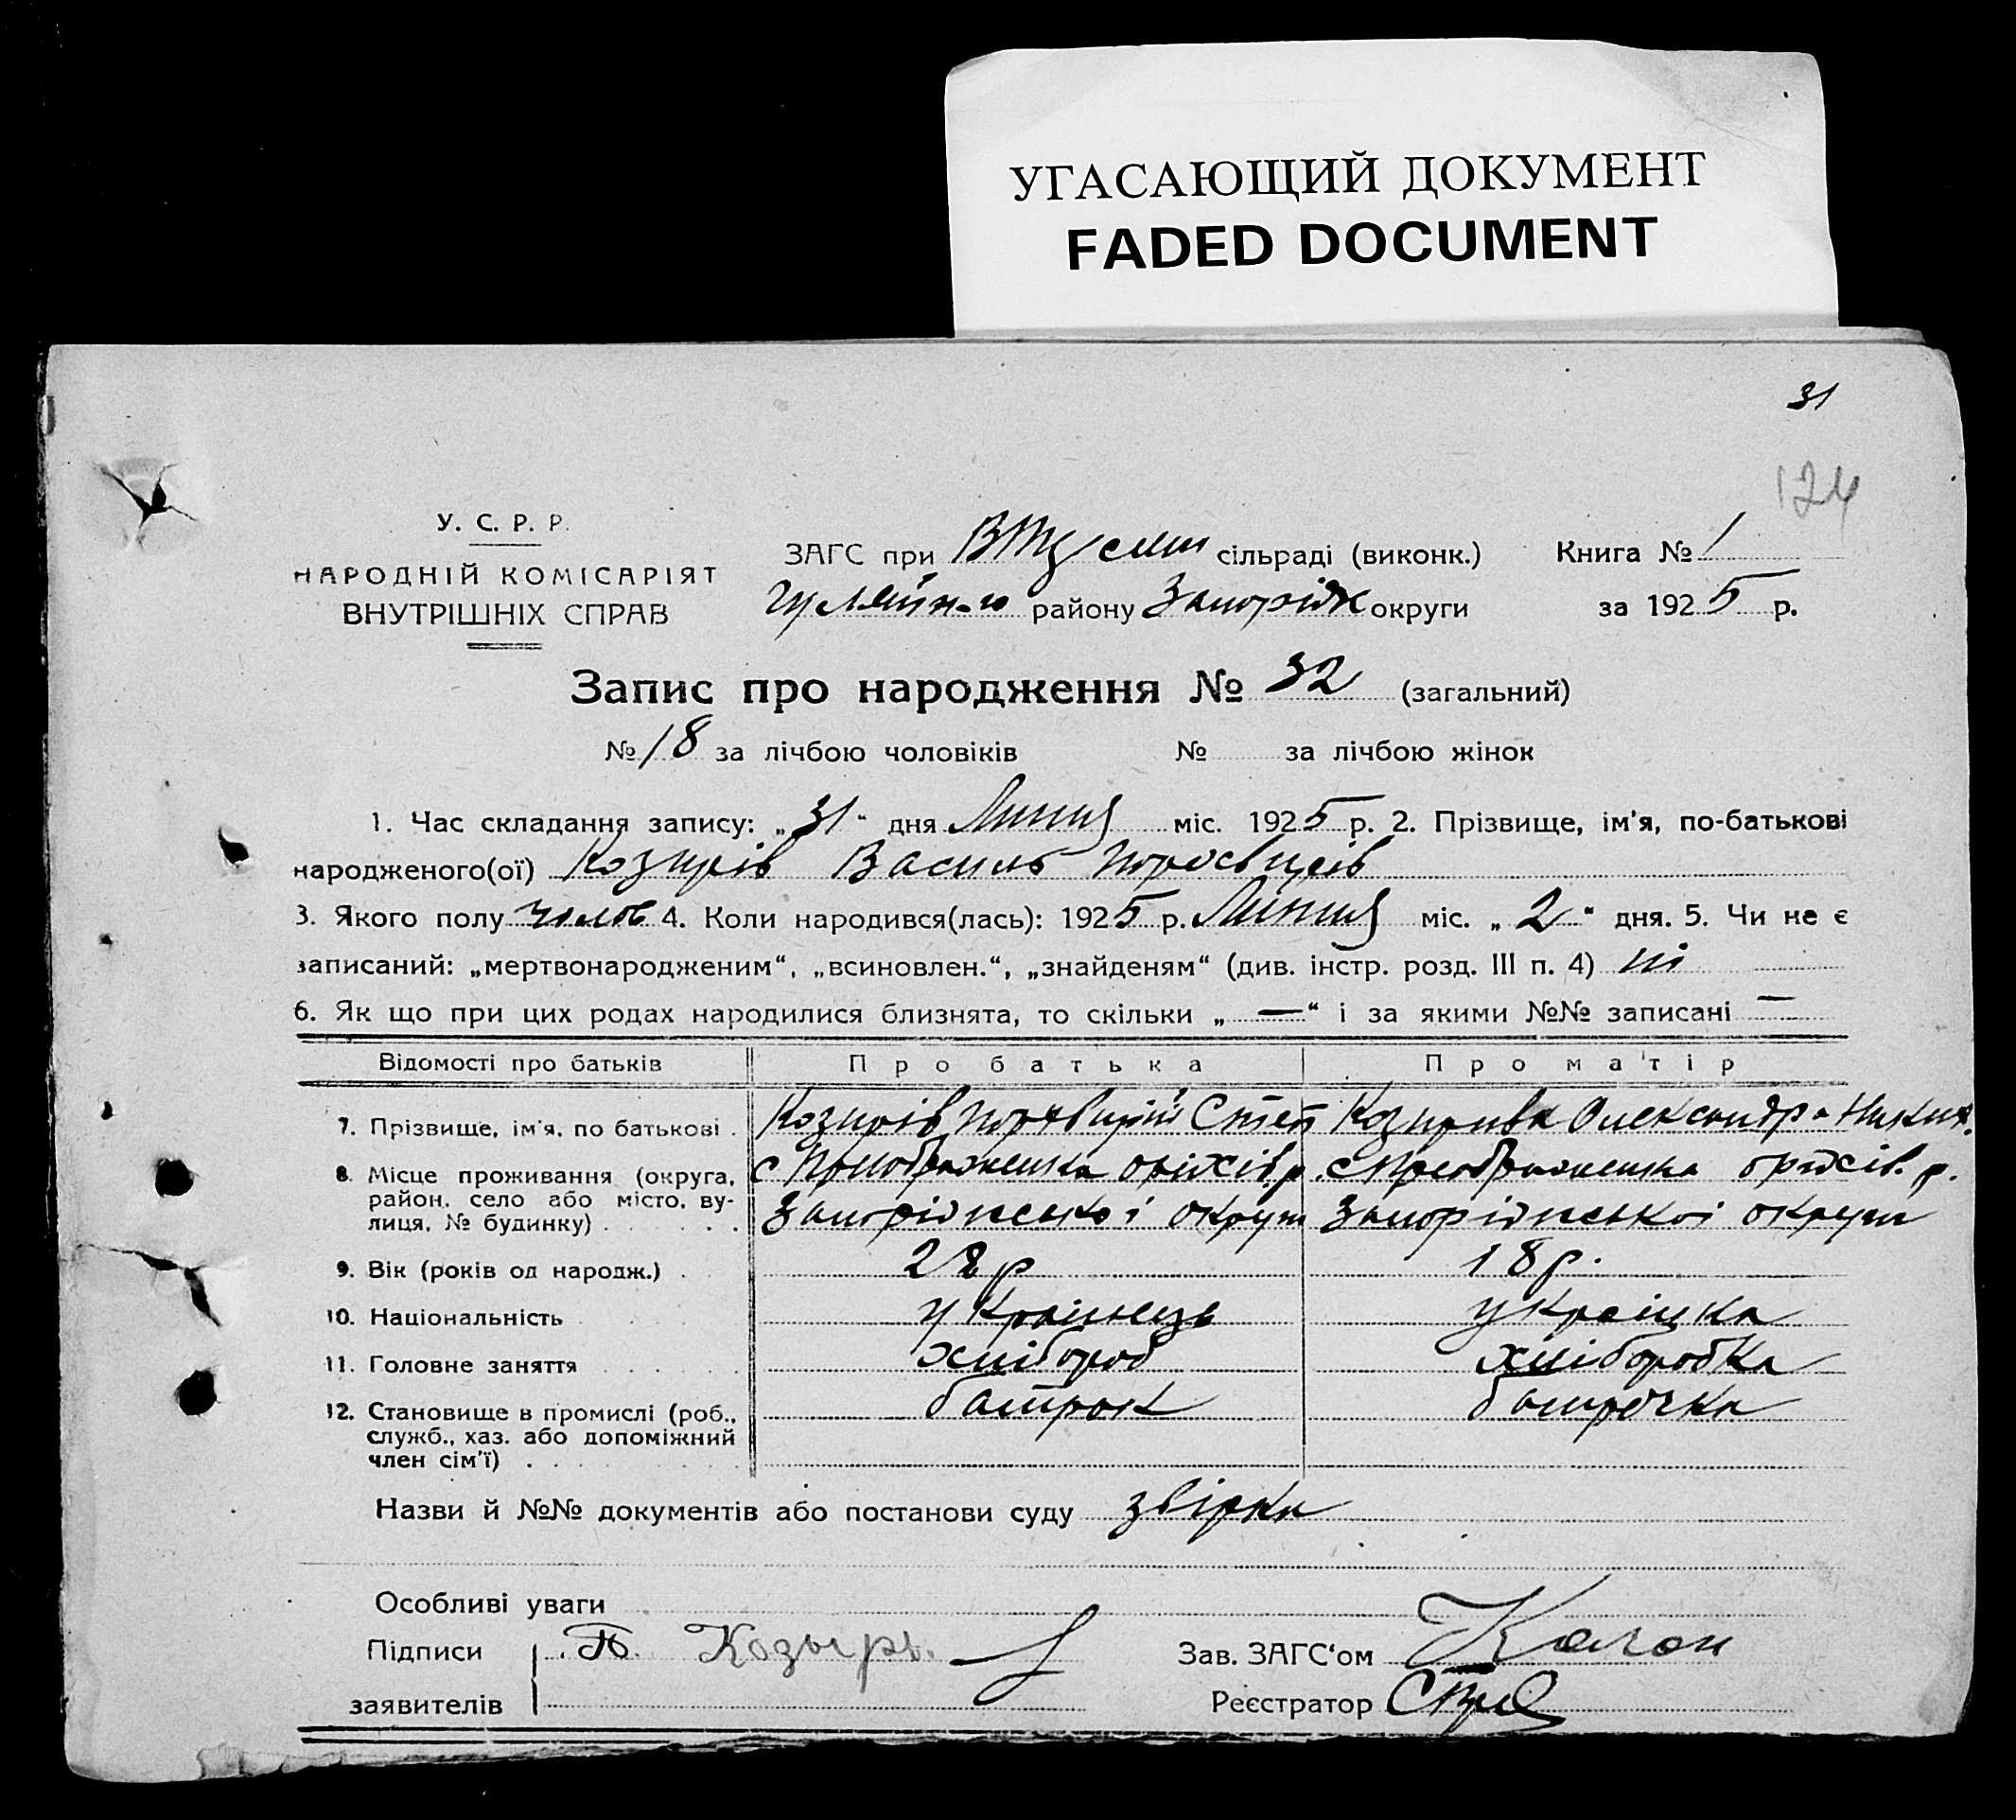 УГАСАЮЩИЙ ДОКУМЕНТ
FADED DOCUMENT
31
124
У. С. Р. Р.
НАРОДНІЙ КОМІСАРІЯТ
ВНУТРІШНІХ СПРАВ
ЗАГС при сільраді (виконк.)
району Запоріж округи
Книга № 1
за 1925 р.
Запис про народження № 32 (загальний)
№ 18 за лічбою чоловіків № за лічбою жінок
1. Час складання запису: „31“ дня Липня міс. 1925 р. 2. Прізвище, ім'я, по-батькові
народженого(ої) Козирів Василь
3. Якого полу чолов 4. Коли народився(лась): 1925 р. Липня міс. „2“ дня. 5. Чи не є
записаний: „мертвонародженим“, „всиновлен.“, „знайденям“ (див. інстр. розд. III п. 4) ні
6. Як що при цих родах народилися близнята, то скільки „—“ і за якими №№ записані —
Відомості про батьків Про батька Про матір
7. Прізвище, ім'я, по батькові . Козирів Степ Козирива Олександра Никит.
8. Місце проживання (округа, район, село або місто, вулиця, № будинку) с Преображенка оріхів. р. с Преображенка оріхів. р.
Запоріжської округи Запоріжської округи
9. Вік (років од народж.) . 22 р 18 р.
10. Національність українець українка
11. Головне заняття хлібороб хліборобка
12. Становище в промислі (роб., служб., хаз. або допоміжний член сім'ї) . батрак батрачка
Назви й №№ документів або постанови суду звірка
Особливі уваги
Підписи заявителів П. Козырь.
Зав. ЗАГС'ом
Реєстратор